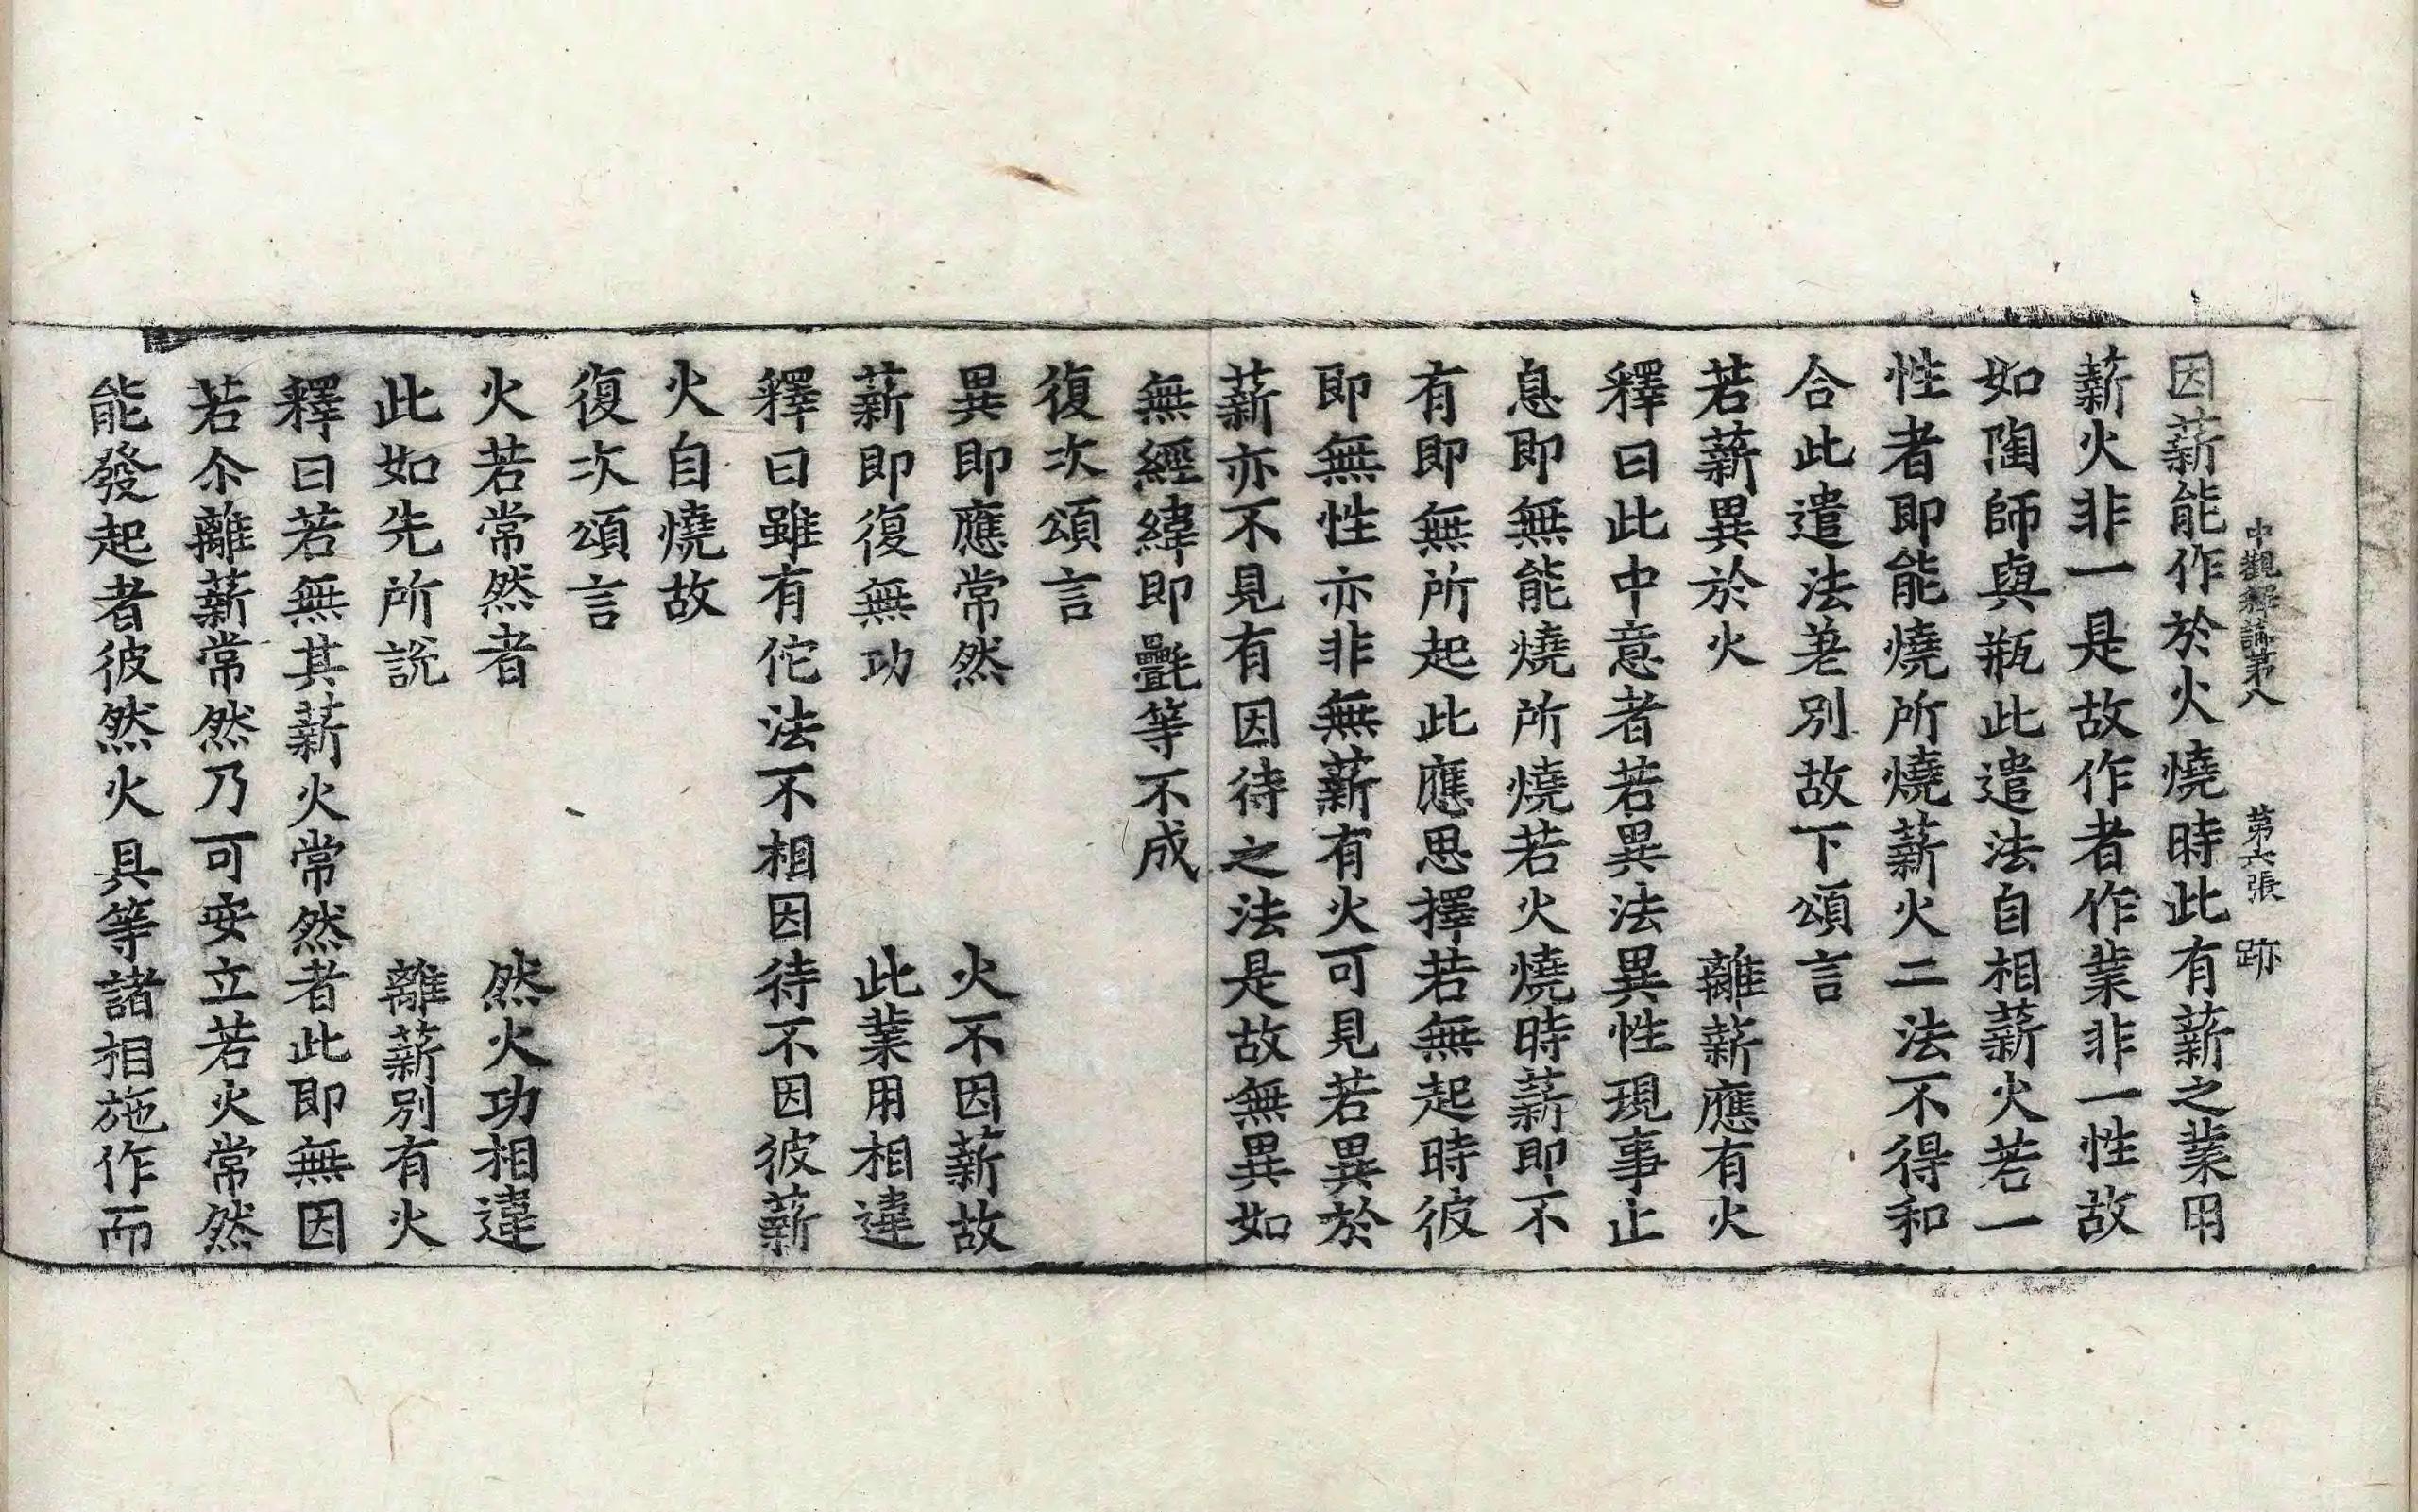 中觀釋論第八　第六張　跡
因薪能作於火燒時此有薪之業用
薪火非一是故作者作業非一性故
如陶師與瓶此遣法自相薪火若一
性者即能燒所燒薪火二法不得和
合此遣法差別故下頌言
若薪異於火　離薪應有火
釋曰此中意者若異法異性現事止
息即無能燒所燒若火燒時薪即不
有即無所起此應思擇若無起時彼
即無性亦非無薪有火可見若異於
薪亦不見有因待之法是故無異如
無經緯即氎等不成
復次頌言
異即應常然　火不因薪故
薪即復無功　此業用相違
釋曰雖有佗法不相因待不因彼薪
火自燒故
復次頌言
火若常然者　然火功相違
此如先所說　離薪別有火
釋曰若無其薪火常然者此即無因
若尒離薪常然乃可安立若火常然
能發起者彼然火具等諸相施作而